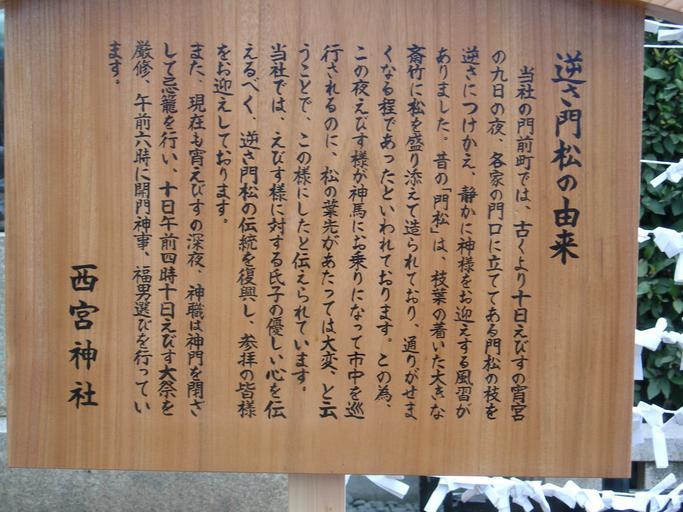 逆さ門松の由来
当社の門前町では、古くより十日えびすの宵宮
の九日の夜、各家の門口に立ててある門松の枝を
逆さにつけかえ、静かに神様をお迎えする風習が
ありました。昔の「門松」は、枝葉の着いた大きな
斎竹に松を盛り添えて造られており、通りがせま
くなる程であったといわれております。この為、
この夜えびす様が神馬にお乗りになって市中を巡
行されるのに、松の葉先があたっては大変、と云
うことで、この様にしたと伝えられています。
当社では、えびす様に対する氏子の優しい心を伝
えるべく、逆さ門松の伝統を復興し、参拝の皆様
をお迎えしております。
また、現在も宵えびすの深夜、神職は神門を閉ざ
して忌籠を行い、十日午前四時十日えびす大祭を
厳修、午前六時に開門神事、福男選びを行ってい
ます。
西宮神社